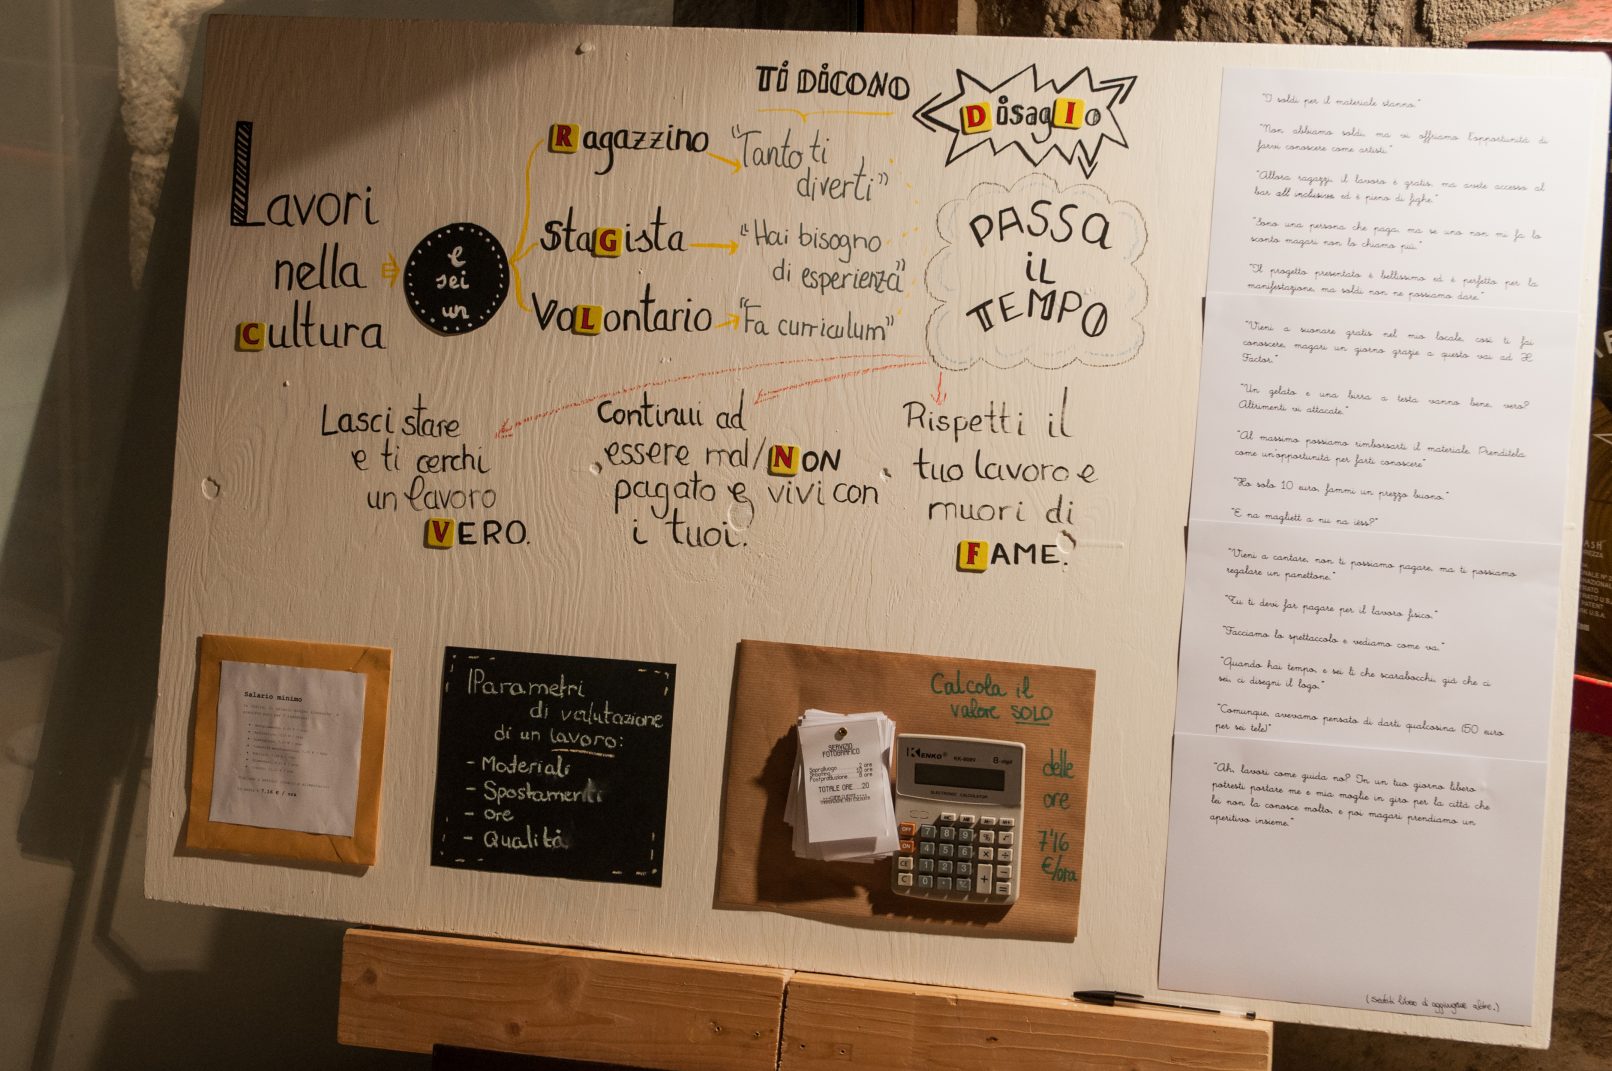 Lavori
nella
Cultura
e
sei
un
Ragazzino
Stagista
Volontario
TI DICONO
"Tanto ti
diverti"
"Hai bisogno
di esperienza"
"Fa curriculum"
DisagIo
PASSA
iL
TEMPO
Lasci stare
e ti cerchi
un lavoro
VERO.
Continui ad
essere mal/NON
pagato e vivi con
i tuoi.
Rispetti il
tuo lavoro e
muori di
FAME.
Salario minimo
7,16 € / ora
Parametri
di valutazione
di un lavoro:
- Materiali
- Spostamenti
- ore
- Qualità
Calcola il
valore SOLO
delle
ore
7'16
€/ora
SERVIZIO
FOTOGRAFICO
Sopralluogo 2 ore
Postproduzione 8 ore
TOTALE ORE 20
KENKO
KK-808V
8-digit
ELECTRONIC CALCULATOR
OFF
ON
CE
C
7 8 9
4 5 6
1 2 3
0
"I soldi per il materiale stanno."
"Non abbiamo soldi, ma vi offriamo l'opportunità di
farvi conoscere come artisti."
"Allora ragazzi, il lavoro è gratis, ma avete accesso al
bar all inclusive ed è pieno di fighe."
"Sono una persona che paga, ma se uno non mi fa lo
sconto magari non lo chiamo più."
"Il progetto presentato è bellissimo ed è perfetto per la
manifestazione, ma soldi non ne possiamo dare."
"Vieni a suonare gratis nel mio locale, così ti fai
conoscere, magari un giorno grazie a questo vai ad X
Factor."
"Un gelato e una birra a testa vanno bene, vero?
Altrimenti vi attacate."
"Al massimo possiamo rimborsarti il materiale. Prenditela
come un'opportunità per farti conoscere"
"Ho solo 10 euro, fammi un prezzo buono."
"E na magliett a nu na iess?"
"Vieni a cantare, non ti possiamo pagare, ma ti possiamo
regalare un panettone."
"Tu ti devi far pagare per il lavoro fisico."
"Facciamo lo spettaccolo e vediamo come va."
"Quando hai tempo, e sei lì che scarabocchi, già che ci
sei, ci disegni il logo."
"Comunque, avevamo pensato di darti qualcosina (50 euro
per sei tele)"
"Ah, lavori come guida no? In un tuo giorno libero
potresti portare me e mia moglie in giro per la città che
lei non la conosce molto, e poi magari prendiamo un
aperitivo insieme."
(Sentiti libero di aggiungerne altre.)